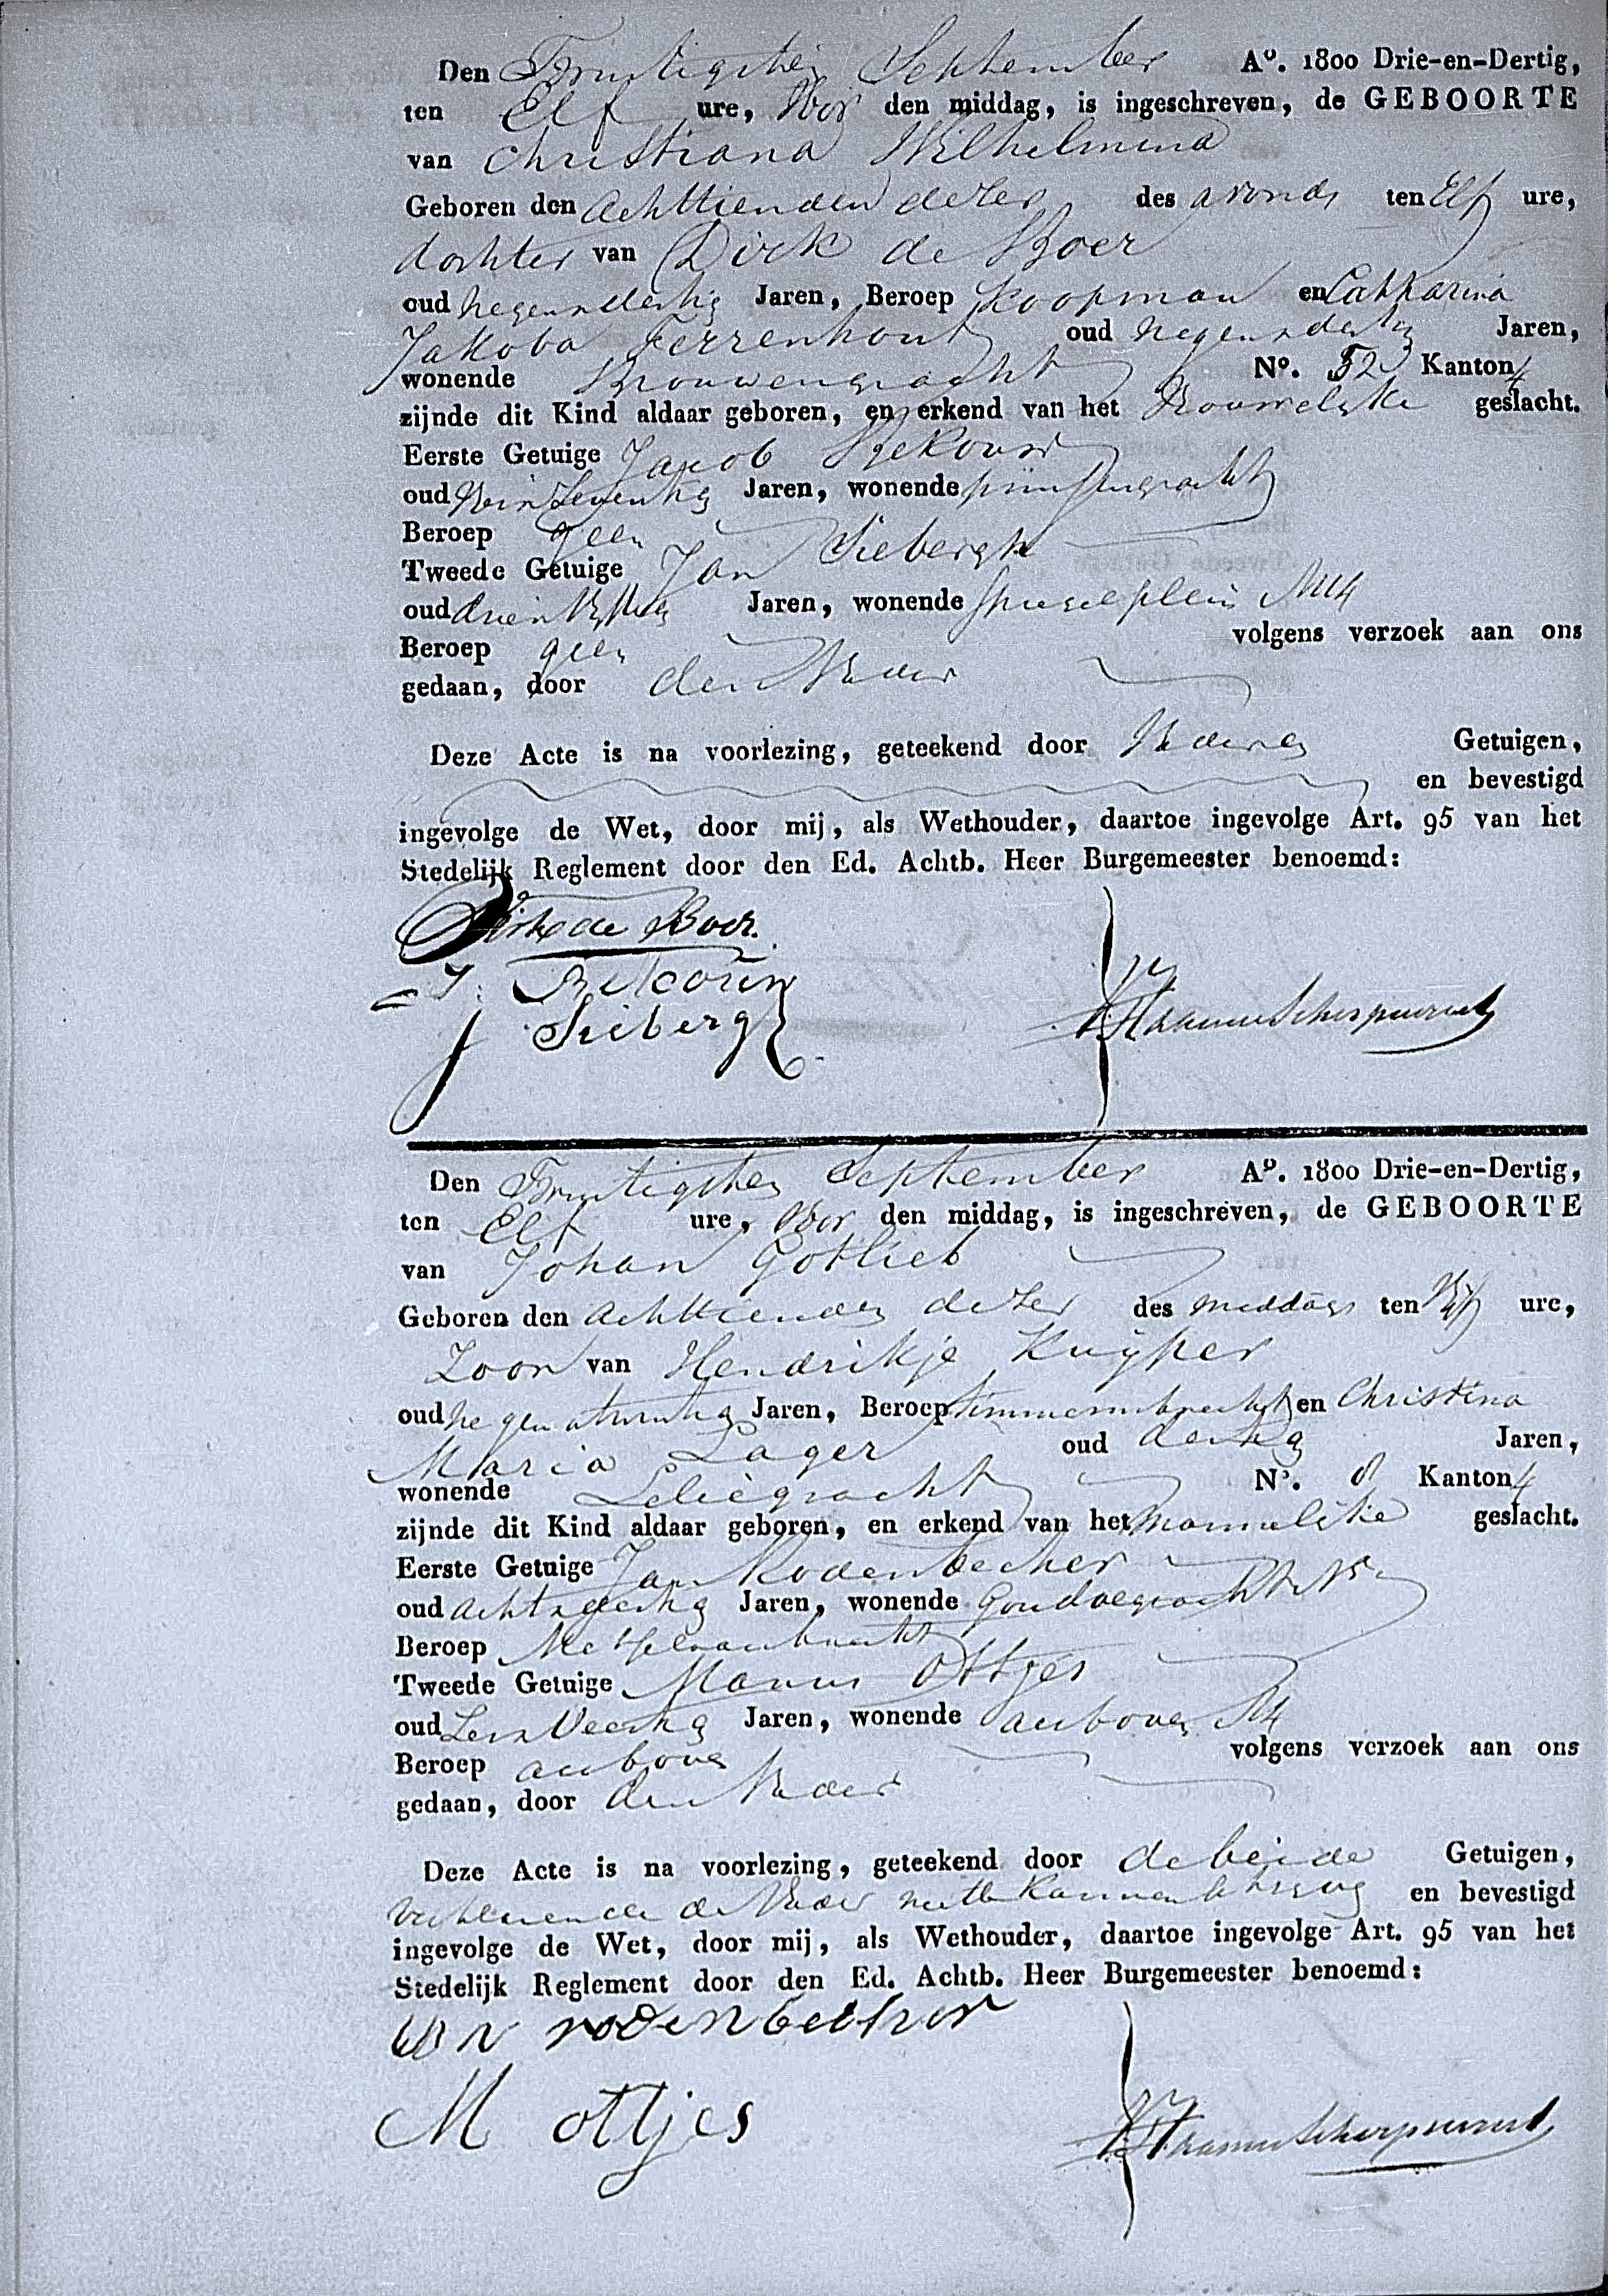 Den Twintigsten September Aº. 1800 Drie-en-Dertig,
ten Elf ure, Voor den middag, is ingeschreven, de GEBOORTE
van Christiana Wilhelmina
Geboren den Achttienden dezer des avonds ten Elf ure,
dochter van Dirk de Boer
oud negenendertig Jaren, Beroep Koopman en Catharina
Jakoba Ferrenhout oud negenendertig Jaren,
wonende Brouwersgracht Nº. 52 Kanton 4
zijnde dit Kind aldaar geboren, en erkend van het Vrouwelijke geslacht.
Eerste Getuige Jacob
oud Jaren, wonende prinsengracht
Beroep geen
Tweede Getuige Jan Siebergh
oud Jaren, wonende
Beroep geen volgens verzoek aan ons
gedaan, door den Vader
Deze Acte is na voorlezing, geteekend door Vader en Getuigen,
en bevestigd
ingevolge de Wet, door mij, als Wethouder, daartoe ingevolge Art. 95 van het
Stedelijk Reglement door den Ed. Achtb. Heer Burgemeester benoemd:
Dirk de Boer.
J.
J Sieberg
Den Twintigsten September Aº. 1800 Drie-en-Dertig,
ten Elf ure, Voor den middag, is ingeschreven, de GEBOORTE
van Johan Gotlieb
Geboren den Achttienden dezer des middags ten Vijf ure,
Zoon van Hendrikje Kuijper
oud negenentwintig Jaren, Beroep timmermansknecht en Christina
Maria Lager oud dertig Jaren,
wonende Leliegracht Nº. 8 Kanton 4
zijnde dit Kind aldaar geboren, en erkend van het mannelijke geslacht.
Eerste Getuige Jan Rodenbecher
oud Jaren, wonende
Beroep Metselaarsknecht
Tweede Getuige Manus Ottjes
oud Jaren, wonende als boven
Beroep als boven volgens verzoek aan ons
gedaan, door den Vader
Deze Acte is na voorlezing, geteekend door de beide Getuigen,
verklarende de Vader niet te kunnen schrijven en bevestigd
ingevolge de Wet, door mij, als Wethouder, daartoe ingevolge Art. 95 van het
Stedelijk Reglement door den Ed. Achtb. Heer Burgemeester benoemd:
rodenbecher
M ottjes